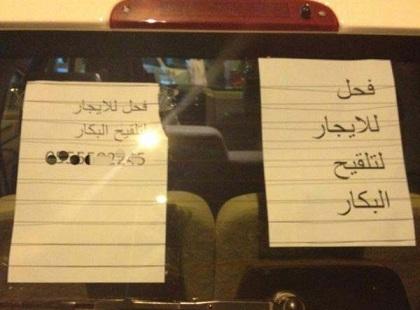 فحل
للايجار
لتلقيح
البكار
فحل للايجار
لتلقيح البكار